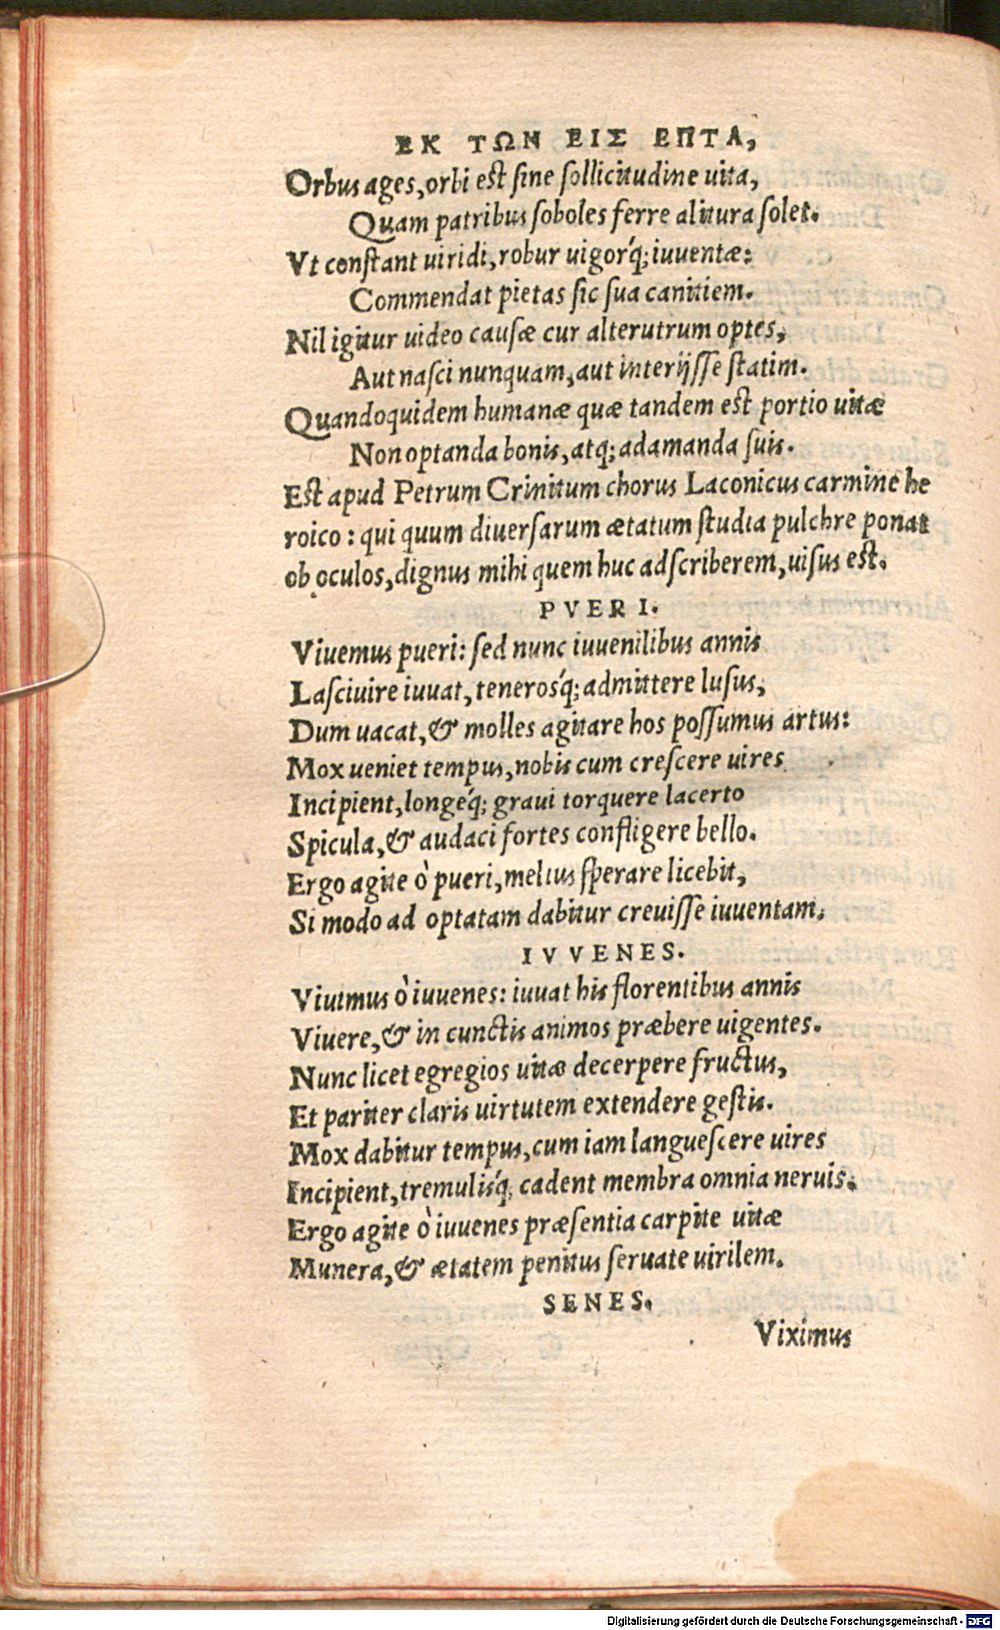 ΕΚ ΤΩΝ ΕΙΣ ΕΠΤΑ,
Orbus ages, orbi est sine sollicitudine uita,
Quam patribus soboles ferre alitura solet.
Vt constant uiridi, robur uigorq́; iuuentæ:
Commendat pietas sic sua canitiem.
Nil igitur uideo causæ cur alterutrum optes,
Aut nasci nunquam, aut interijsse statim.
Quandoquidem humanæ quæ tandem est portio uitæ
Non optanda bonis, atq; adamanda suis.
Est apud Petrum Crinitum chorus Laconicus carmine he
roico: qui quum diuersarum ætatum studia pulchre ponat
ob oculos, dignus mihi quem huc adscriberem, uisus est.
PVERI.
Viuemus pueri: sed nunc iuuenilibus annis
Lasciuire iuuat, tenerosq́; admittere lusus,
Dum uacat, & molles agitare hos possumus artus:
Mox ueniet tempus, nobis cum crescere uires
Incipient, longeq́; graui torquere lacerto
Spicula, & audaci fortes confligere bello.
Ergo agite ò pueri, melius sperare licebit,
Si modo ad optatam dabitur creuisse iuuentam.
IVVENES.
Viuimus ò iuuenes: iuuat his florentibus annis
Viuere, & in cunctis animos præbere uigentes.
Nunc licet egregios uitæ decerpere fructus,
Et pariter claris uirtutem extendere gestis.
Mox dabitur tempus, cum iam languescere uires
Incipient, tremulisq́; cadent membra omnia neruis.
Ergo agite ò iuuenes præsentia carpite uitæ
Munera, & ætatem penitus seruate uirilem.
SENES.
Viximus
Digitalisierung gefördert durch die Deutsche Forschungsgemeinschaft - DFG